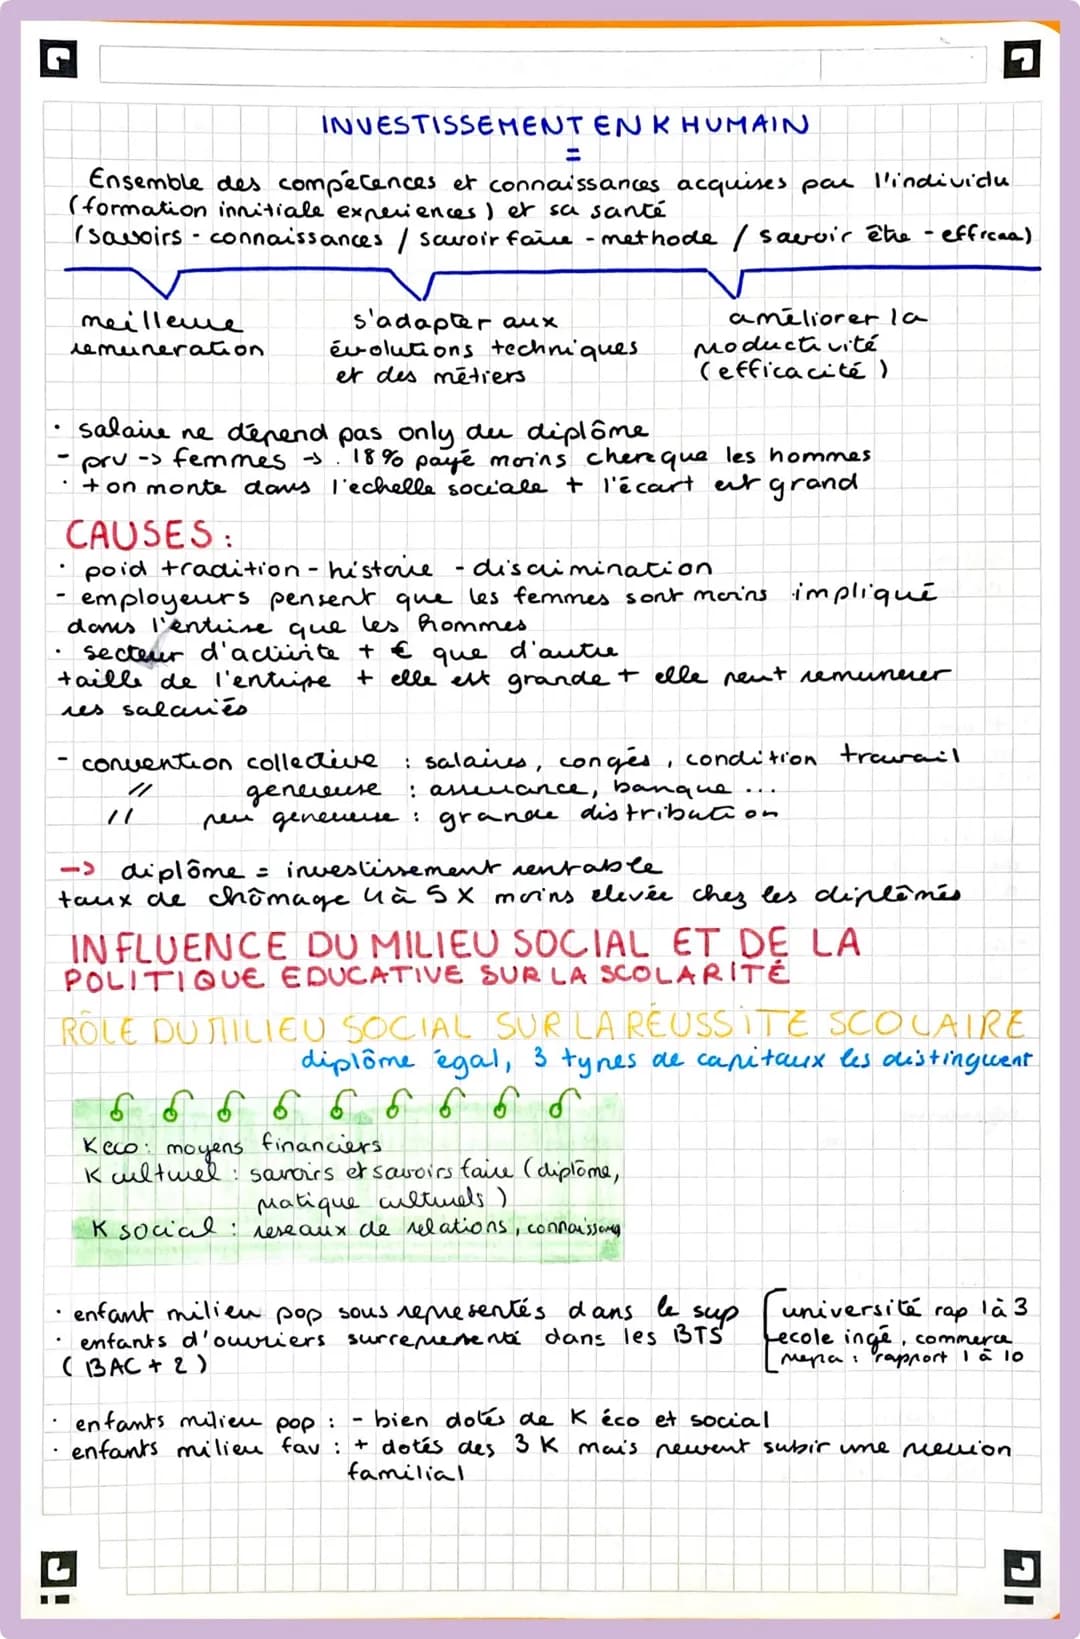 INVESTISSEMENT EN K HUMAIN
=
Ensemble des compétences et connaissances acquises par l'individu
(formation innitiale experiences) et sa santé
(savoirs - connaissances / savoir faire - methode / savoir être - efficaa)
meilleure
remuneration
s'adapter aux
évolutions techniques
et des métiers
améliorer la
productivité
(efficacité)
· salaire ne dépend pas only du diplôme
- prv -> femmes -> . 18% payé moins chere que les hommes
· + on monte dans l'echelle sociale + l'écart est grand
CAUSES :
· poid tradition - histoire - discrimination
- employeurs pensent que les femmes sont moins impliqué
dans l'entrise que les hommes
· secteur d'activite + € que d'autre
taille de l'entripe + elle est grande + elle peut remunerer
ses salariés
- convention collective : salaires, congés, condition travail
// genereuse : assurance, banque ...
// peu genereuse : grande distribution
-> diplôme = investissement rentable
taux de chômage 4 à 5 X moins elevée chez les diplômés
INFLUENCE DU MILIEU SOCIAL ET DE LA
POLITIQUE EDUCATIVE SUR LA SCOLARITÉ
RÔLE DU MILIEU SOCIAL SUR LA RÉUSSITE SCOLAIRE
diplôme égal, 3 types de capitaux les distinguent
K eco : moyens financiers
K culturel : savoirs et savoirs faire (diplôme,
pratique culturels)
K social : reseaux de relations, connaissang
· enfant milieu pop sous representés dans le sup
· enfants d'ouvriers surrepresenté dans les BTS
(BAC + 2)
université rap 1 à 3
ecole ingé, commerce
prepa : rapport 1 à 10
· enfants milieu pop : - bien dotés de K éco et social
· enfants milieu fav : + dotés des 3 K mais peuvent subir une pression
familial